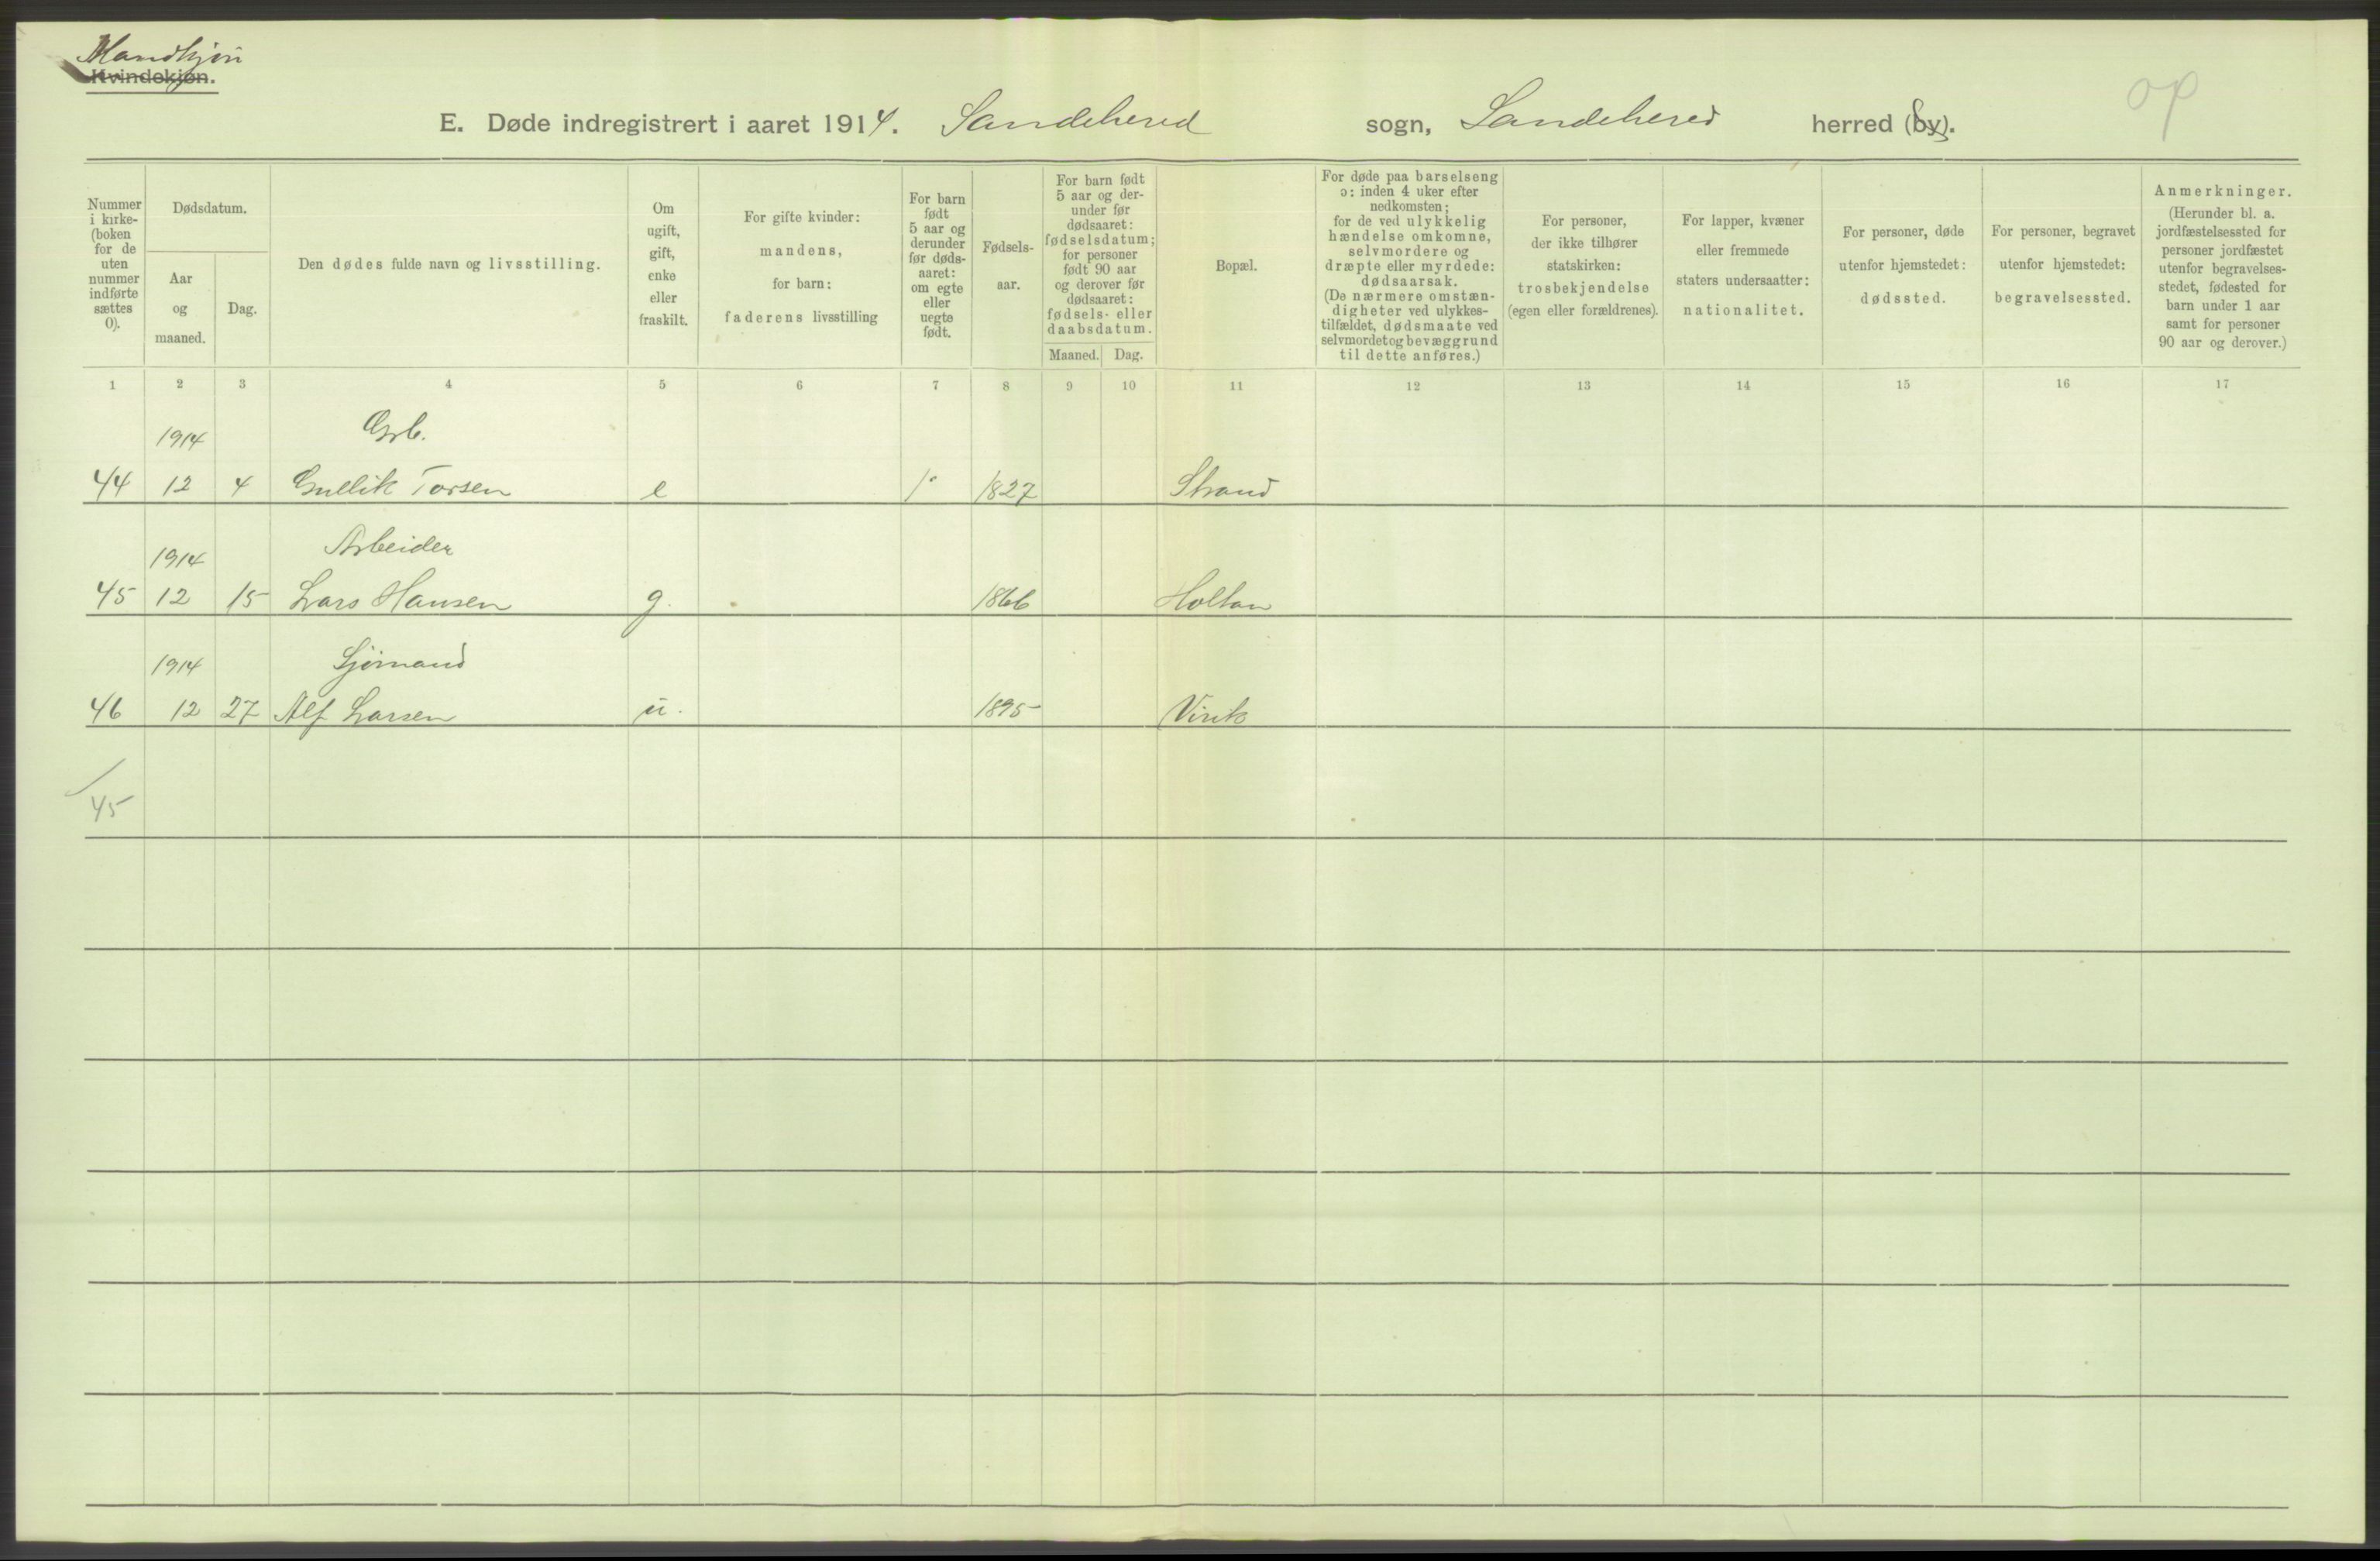 Mandkjøn
Kvindekjøn.
E. Døde indregistrert i aaret 1914. Sandehered sogn, Sandehered herred (by).
op
Nummer
i kirke-
(boken
for de
uten
nummer
indførte
sættes
0).
Dødsdatum.
Aar
og
maaned.
Dag.
Den dødes fulde navn og livsstilling.
Om
ugift,
gift,
enke
eller
fraskilt.
For gifte kvinder:
mandens,
for barn:
faderens livsstilling
For barn
født
5 aar og
derunder
før døds-
aaret:
om egte
eller
uegte
født.
Fødsels-
aar.
For barn født
5 aar og der-
under før
dødsaaret:
fødselsdatum;
for personer
født 90 aar
og derover før
dødsaaret:
fødsels- eller
daabsdatum.
Maaned. Dag.
Bopæl.
For døde paa barselseng
ɔ: inden 4 uker efter
nedkomsten;
for de ved ulykkelig
hændelse omkomne,
selvmordere og
dræpte eller myrdede:
dødsaarsak.
(De nærmere omstæn-
digheter ved ulykkes-
tilfældet, dødsmaate ved
selvmordet og bevæggrund
til dette anføres.)
For personer,
der ikke tilhører
statskirken:
trosbekjendelse
(egen eller forældrenes).
For lapper, kvæner
eller fremmede
staters undersaatter:
nationalitet.
For personer, døde
utenfor hjemstedet:
dødssted.
For personer, begravet
utenfor hjemstedet:
begravelsessted.
Anmerkninger.
(Herunder bl. a.
jordfæstelsessted for
personer jordfæstet
utenfor begravelses-
stedet, fødested for
barn under 1 aar
samt for personer
90 aar og derover.)
1 2 3 4 5 6 7 8 9 10 11 12 13 14 15 16 17
1914
44 12 4 Gullik Torsen e 1827 Strand
1914 Arbeider
45 12 15 Lars Hansen g. 1866 Holtan
1914 Sjømand
46 12 27 Alf Larsen u. 1895 Virik
45